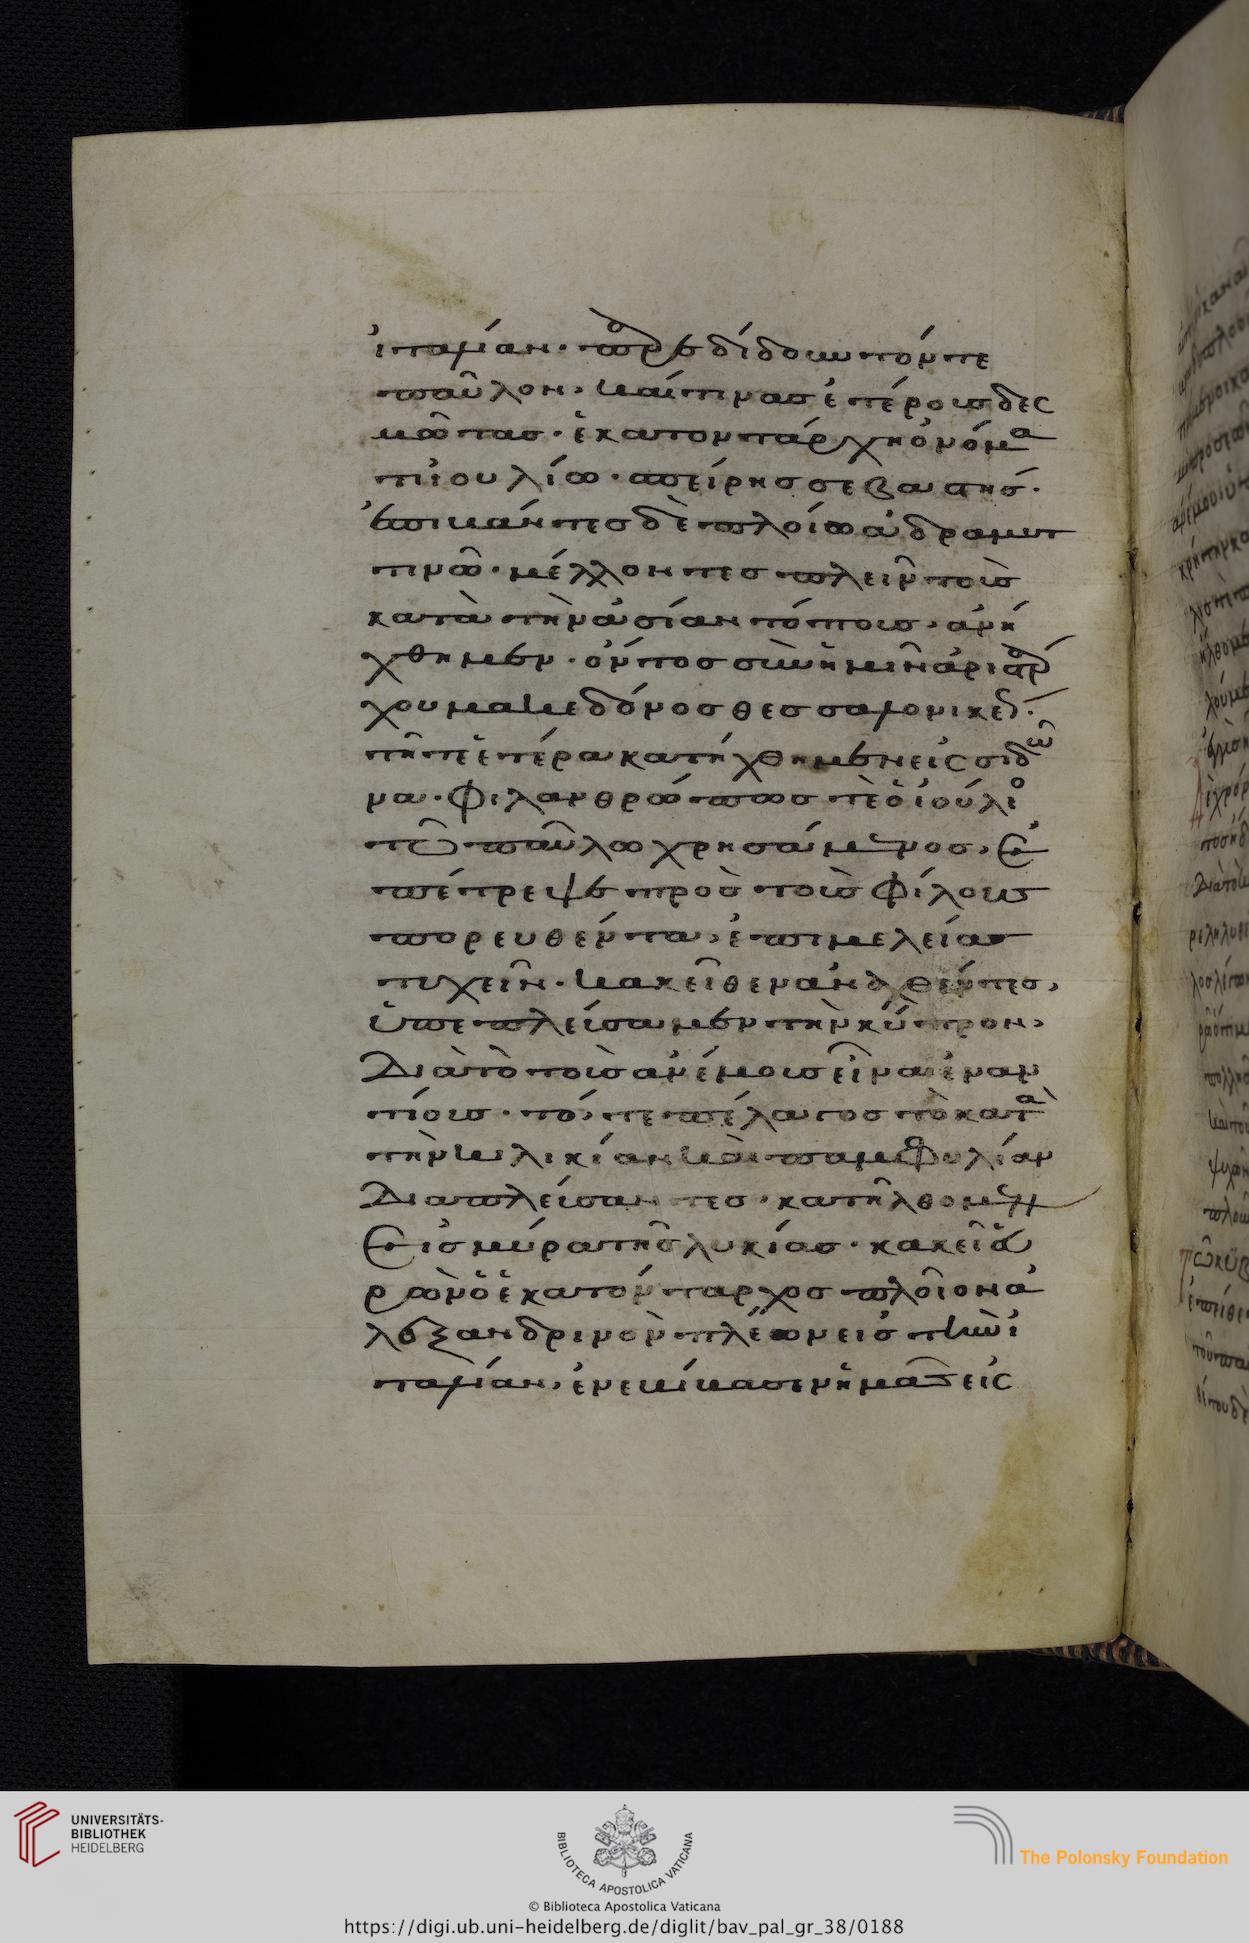 ἰταλίαν· παρεδίδουν τόν τε
παῦλον, καί τινας ἑτέρους δεσ
μώτας· ἑκατοντάρχη ὀνόμα
τι ἰουλίω· σπείρης σεβαστῆς·
ἐπιβάντες δὲ πλοίω ἀδραμυτ
τινῶ· μέλλοντες πλεῖν τοὺς
κατὰ τὴν ἀσίαν τόπους, ἀνή
χθημεν· ὄντος σὺν ἡμῖν ἀριστάρ
χου μακεδόνος θεσσαλονικέως·
τῆ τε ἑτέρα κατήχθημεν εἰς σιδῶ
να· φιλανθρώπως τε ὁ ἰούλιος
τῶ παύλω χρησάμενος, ἐ
πέτρεψε πρὸς τοὺς φίλους
πορευθέντα, ἐπιμελείας
τυχεῖν· κακεῖθεν ἀναχθέντες,
ὑπεπλεύσαμεν τὴν κύπρον,
διὰ τὸ τοὺς ἀνέμους εἶναι ἐναν
τίους· τό, τε πέλαγος τὸ κατὰ
τὴν κιλικίαν καὶ παμφυλίαν
διαπλεύσαντες· κατήλθομεν
εἰς μύρα τῆς λυκίας· κακεῖ εὑ
ρὼν ὁ ἑκατόνταρχος πλοῖον ἀ
λεξανδρινὸν πλέων εἰς τὴν ἰ
ταλίαν, ἐνεβίβασεν ἡμᾶς εἰς
UNIVERSITÄTS-
BIBLIOTHEK
HEIDELBERG
BIBLIOTECA APOSTOLICA VATICANA
The Polonsky Foundation
© Biblioteca Apostolica Vaticana
https://digi.ub.uni-heidelberg.de/diglit/bav_pal_gr_38/0188